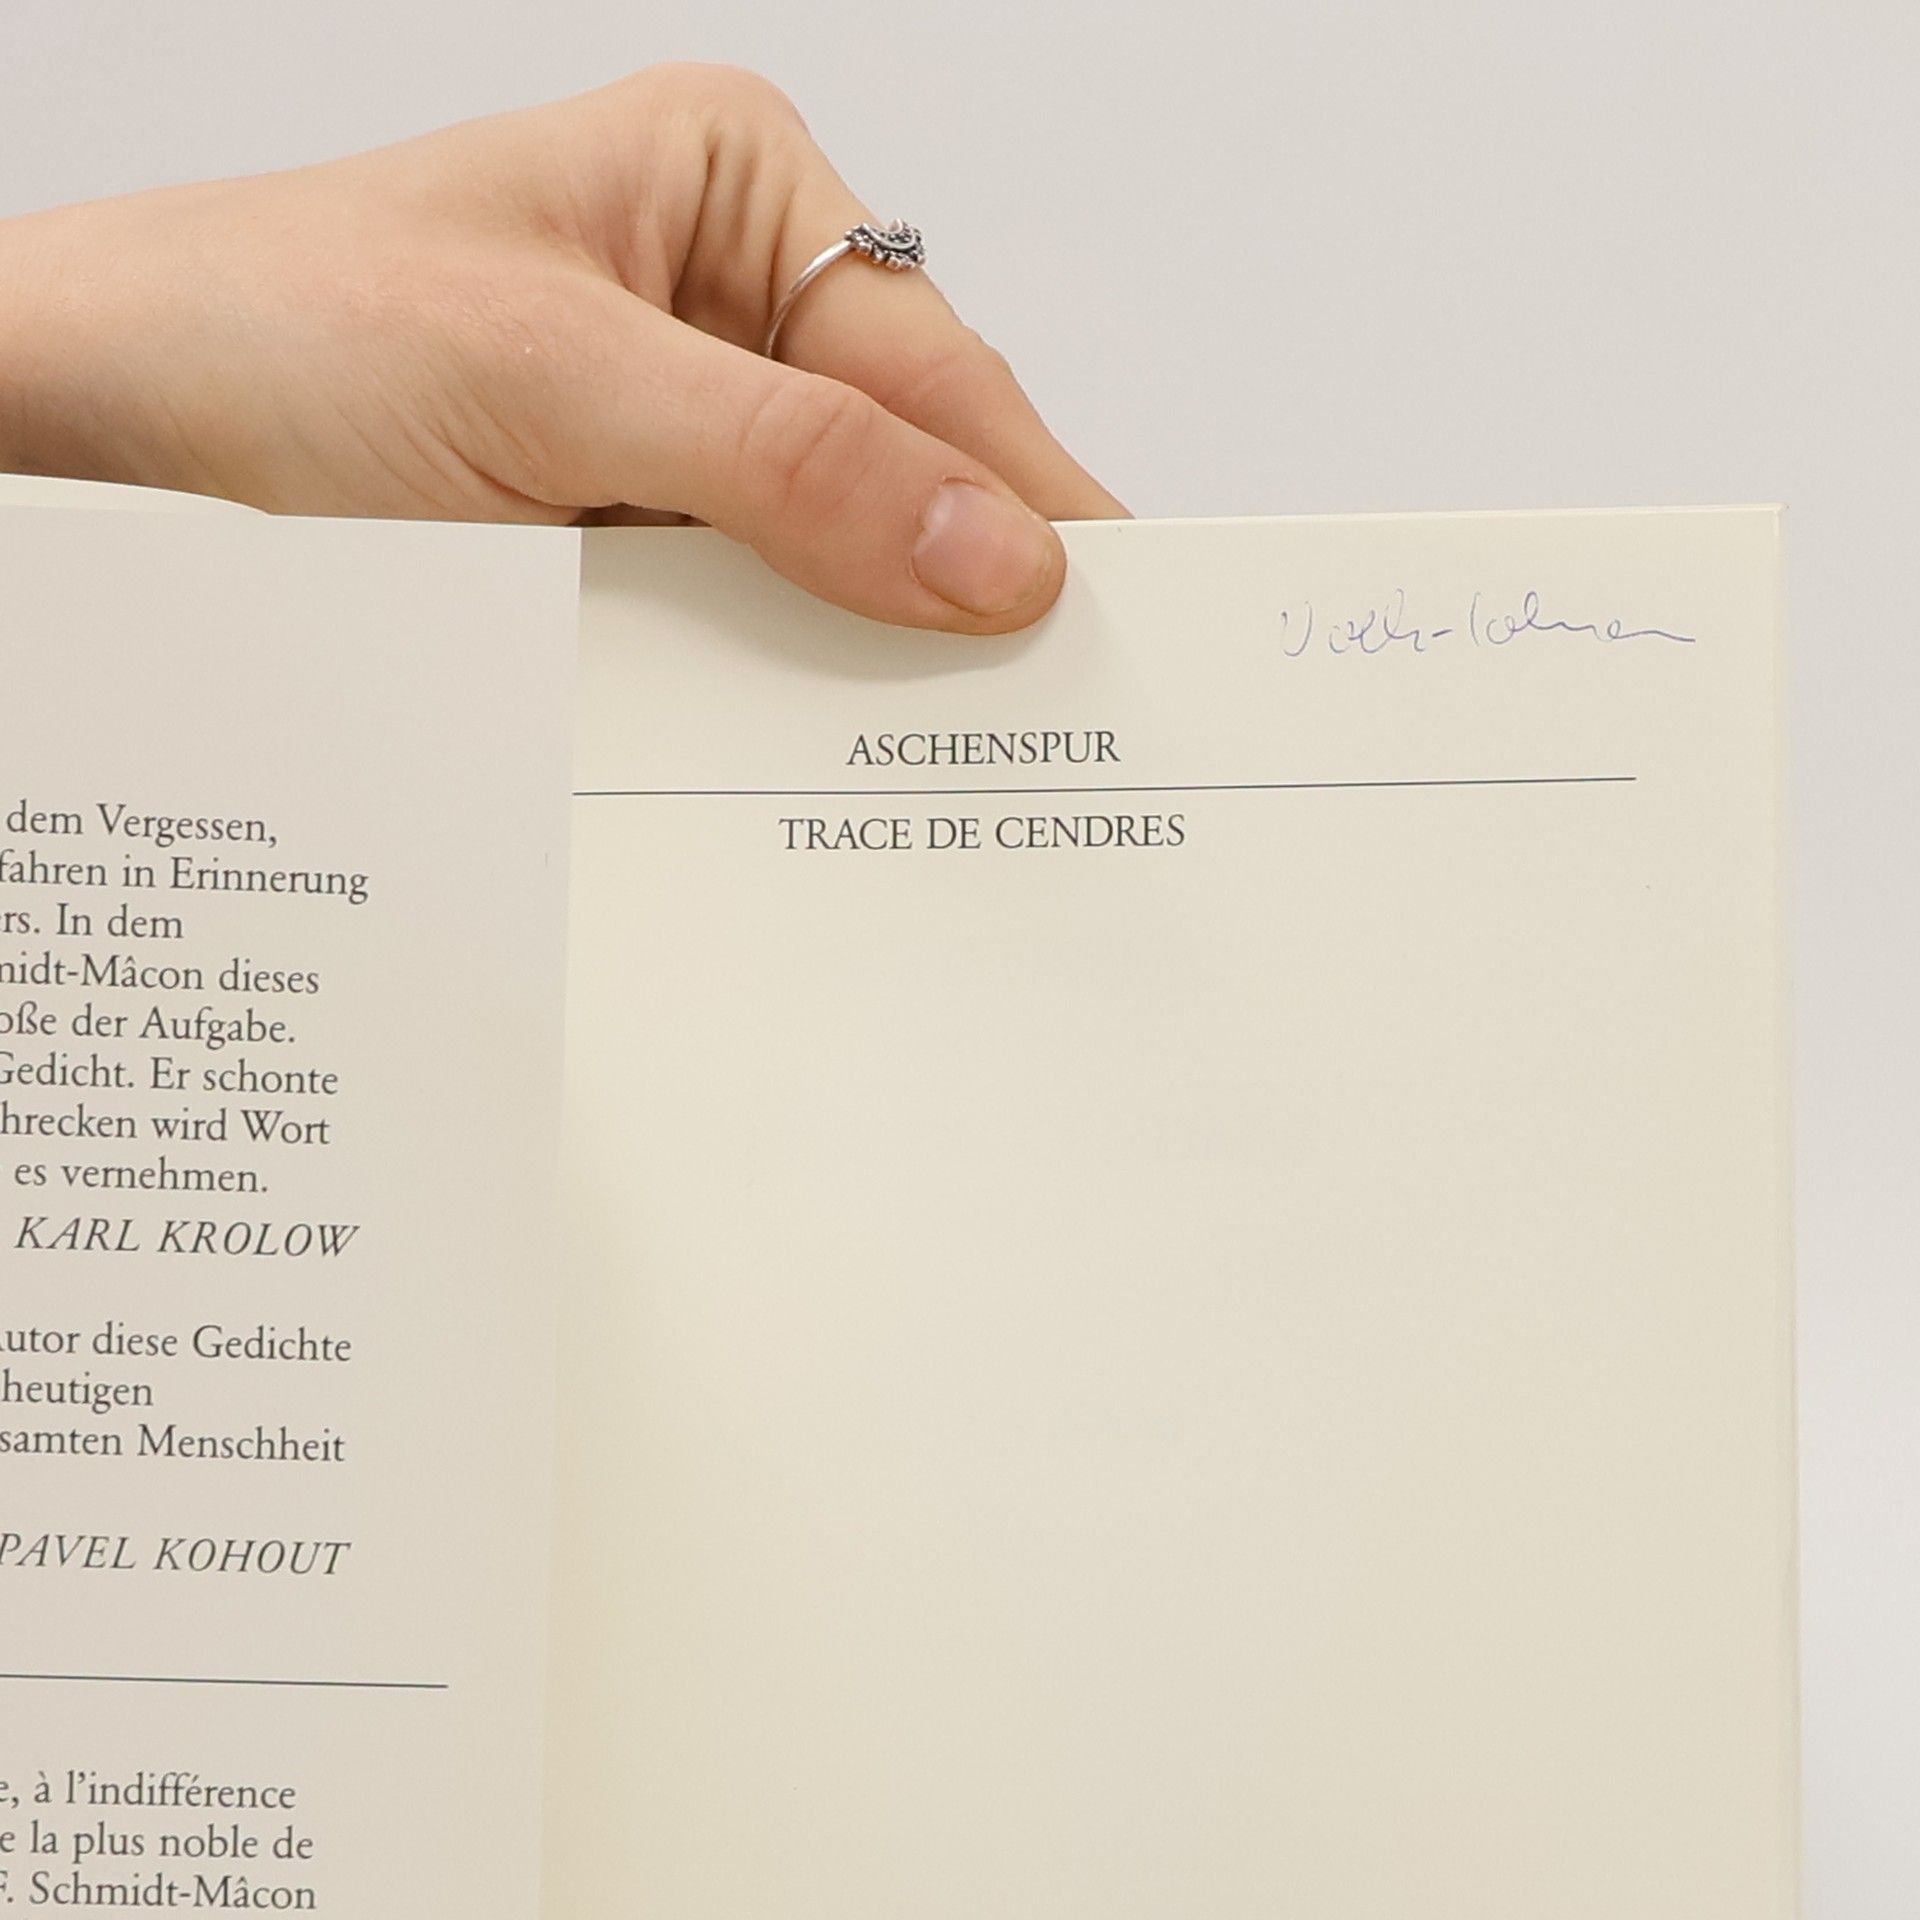 dem Vergessen,
fahren in Erinnerung
rs. In dem
midt-Mâcon dieses
oße der Aufgabe.
Gedicht. Er schonte
hrecken wird Wort
es vernehmen.
KARL KROLOW
utor diese Gedichte
heutigen
samten Menschheit
PAVEL KOHOUT
e, à l’indifférence
e la plus noble de
F. Schmidt-Mâcon
ASCHENSPUR
TRACE DE CENDRES